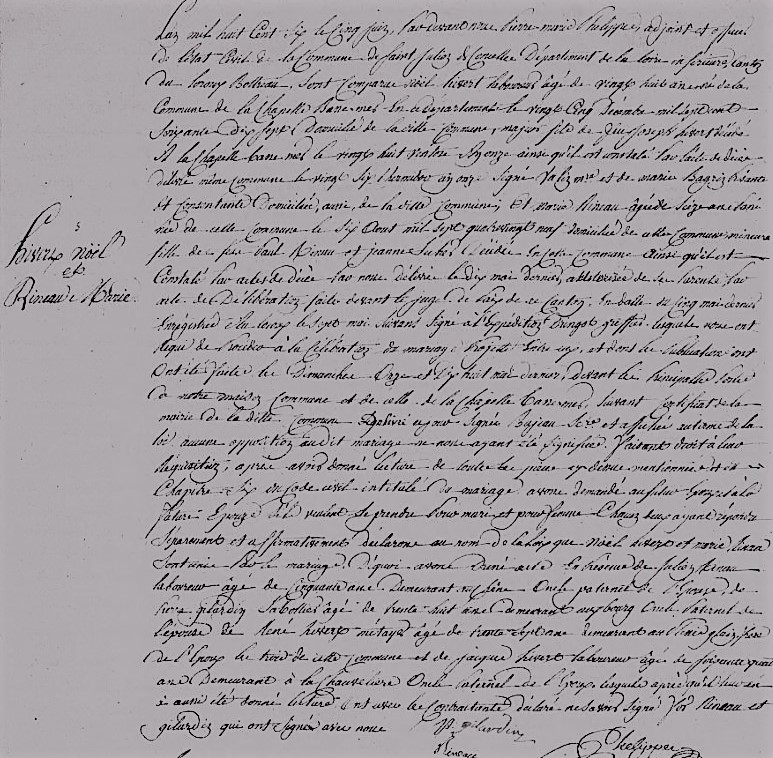 L'an mil huit Cent Six le Cinq juin, Par devant nous Pierre marie Phelippe, adjoint et officier
de l'état Civil de la Commune de Saint Julien de Concelles Département de la loire inferieure, Canton
du loroux Bottreau, Sont Comparus Noël hivert laboureur âgé de vingt huit ans né de la
Commune de la Chapelle Basse mer En ce département le vingt Cinq Décembre mil Sept Cent
Soixante Dix Sept, Domicilié de la ditte Commune, majeur fils de feu Joseph hivert Décédé
A la Chapelle basse mer le vingt huit ventôse An onze ainsi qu'il est constaté Par l'acte de décès
délivré même Commune le vingt Six an onze Signé et de marie Présente
et Consentante Domiciliée, aussi, de la ditte Commune; Et marie Rineau âgée de Seize ans
née de cette Commune le Six Aout mil Sept quatre vingt neuf domiciliée de cette Commune mineure
fille de feu Paul Rineau et jeanne Décédés En cette Commune Ainsi qu'il est
Constaté Par actes de décès Par nous délivrés le dix mai dernier, authorisée de Ses Parents Par
acte de Délibération faite devant le juge de Paix de ce Canton, En datte du Cinq mai dernier
Enregistré Au loroux le Sept mai Suivant Signé à l'Expédition greffier, lesquels nous ont
requi de Procéder à la Célébration du mariage Projetté Entre eux, et dont les Publications ont
Ont été faites les Dimanches Onze et Dix huit mai dernier, devant la Principalle Porte
de notre maison Commune et de celle de la Chapelle basse mer, Suivant Certificat de la
mairie de la ditte Commune Délivré ce jour Signé Bujeau et affichés au terme de la
loi aucune opposition au dit mariage ne nous ayant été Signifiée Faisant droit à leur
réquisition, après avoir donné lecture de toutes les pièces cy dessus mentionnées et du
Chapitre Six du Code civil intitulé du mariage avons demandé au futur Epoux et à la
future Epouse S'ils veulent Se prendre Pour mari et pour femme Chacun deux ayant répondu
Séparément et affirmativement déclarons au nom de la loy que Noël hivert et marie Rineau
Sont unis Par le mariage. De quoi avons Dressé acte En présence de Julien Rineau
laboureur âgé de Cinquante ans Demeurant Oncle paternel de l'Epouse, de
Pierre gilardin Sabottier âgé de trente huit ans demeurant au bourg Oncle Paternel de
l'épouse de René hivert métayer âgé de trente Sept ans demeurant au frère
de l'Epoux les trois de cette Commune et de Jacques hivert laboureur âgé de Soixante quatre
ans Demeurant à la Chauvelière Oncle Paternel de l'Epoux, lesquels après qu'il leur en
a aussi été donné lecture Ont avec les Contractants déclaré ne Savoir Signé fors Rineau et
gilardin qui ont Signés avec nous
P gilardin
Rineau
Phelippe
hivert Noël
et
Rineau Marie